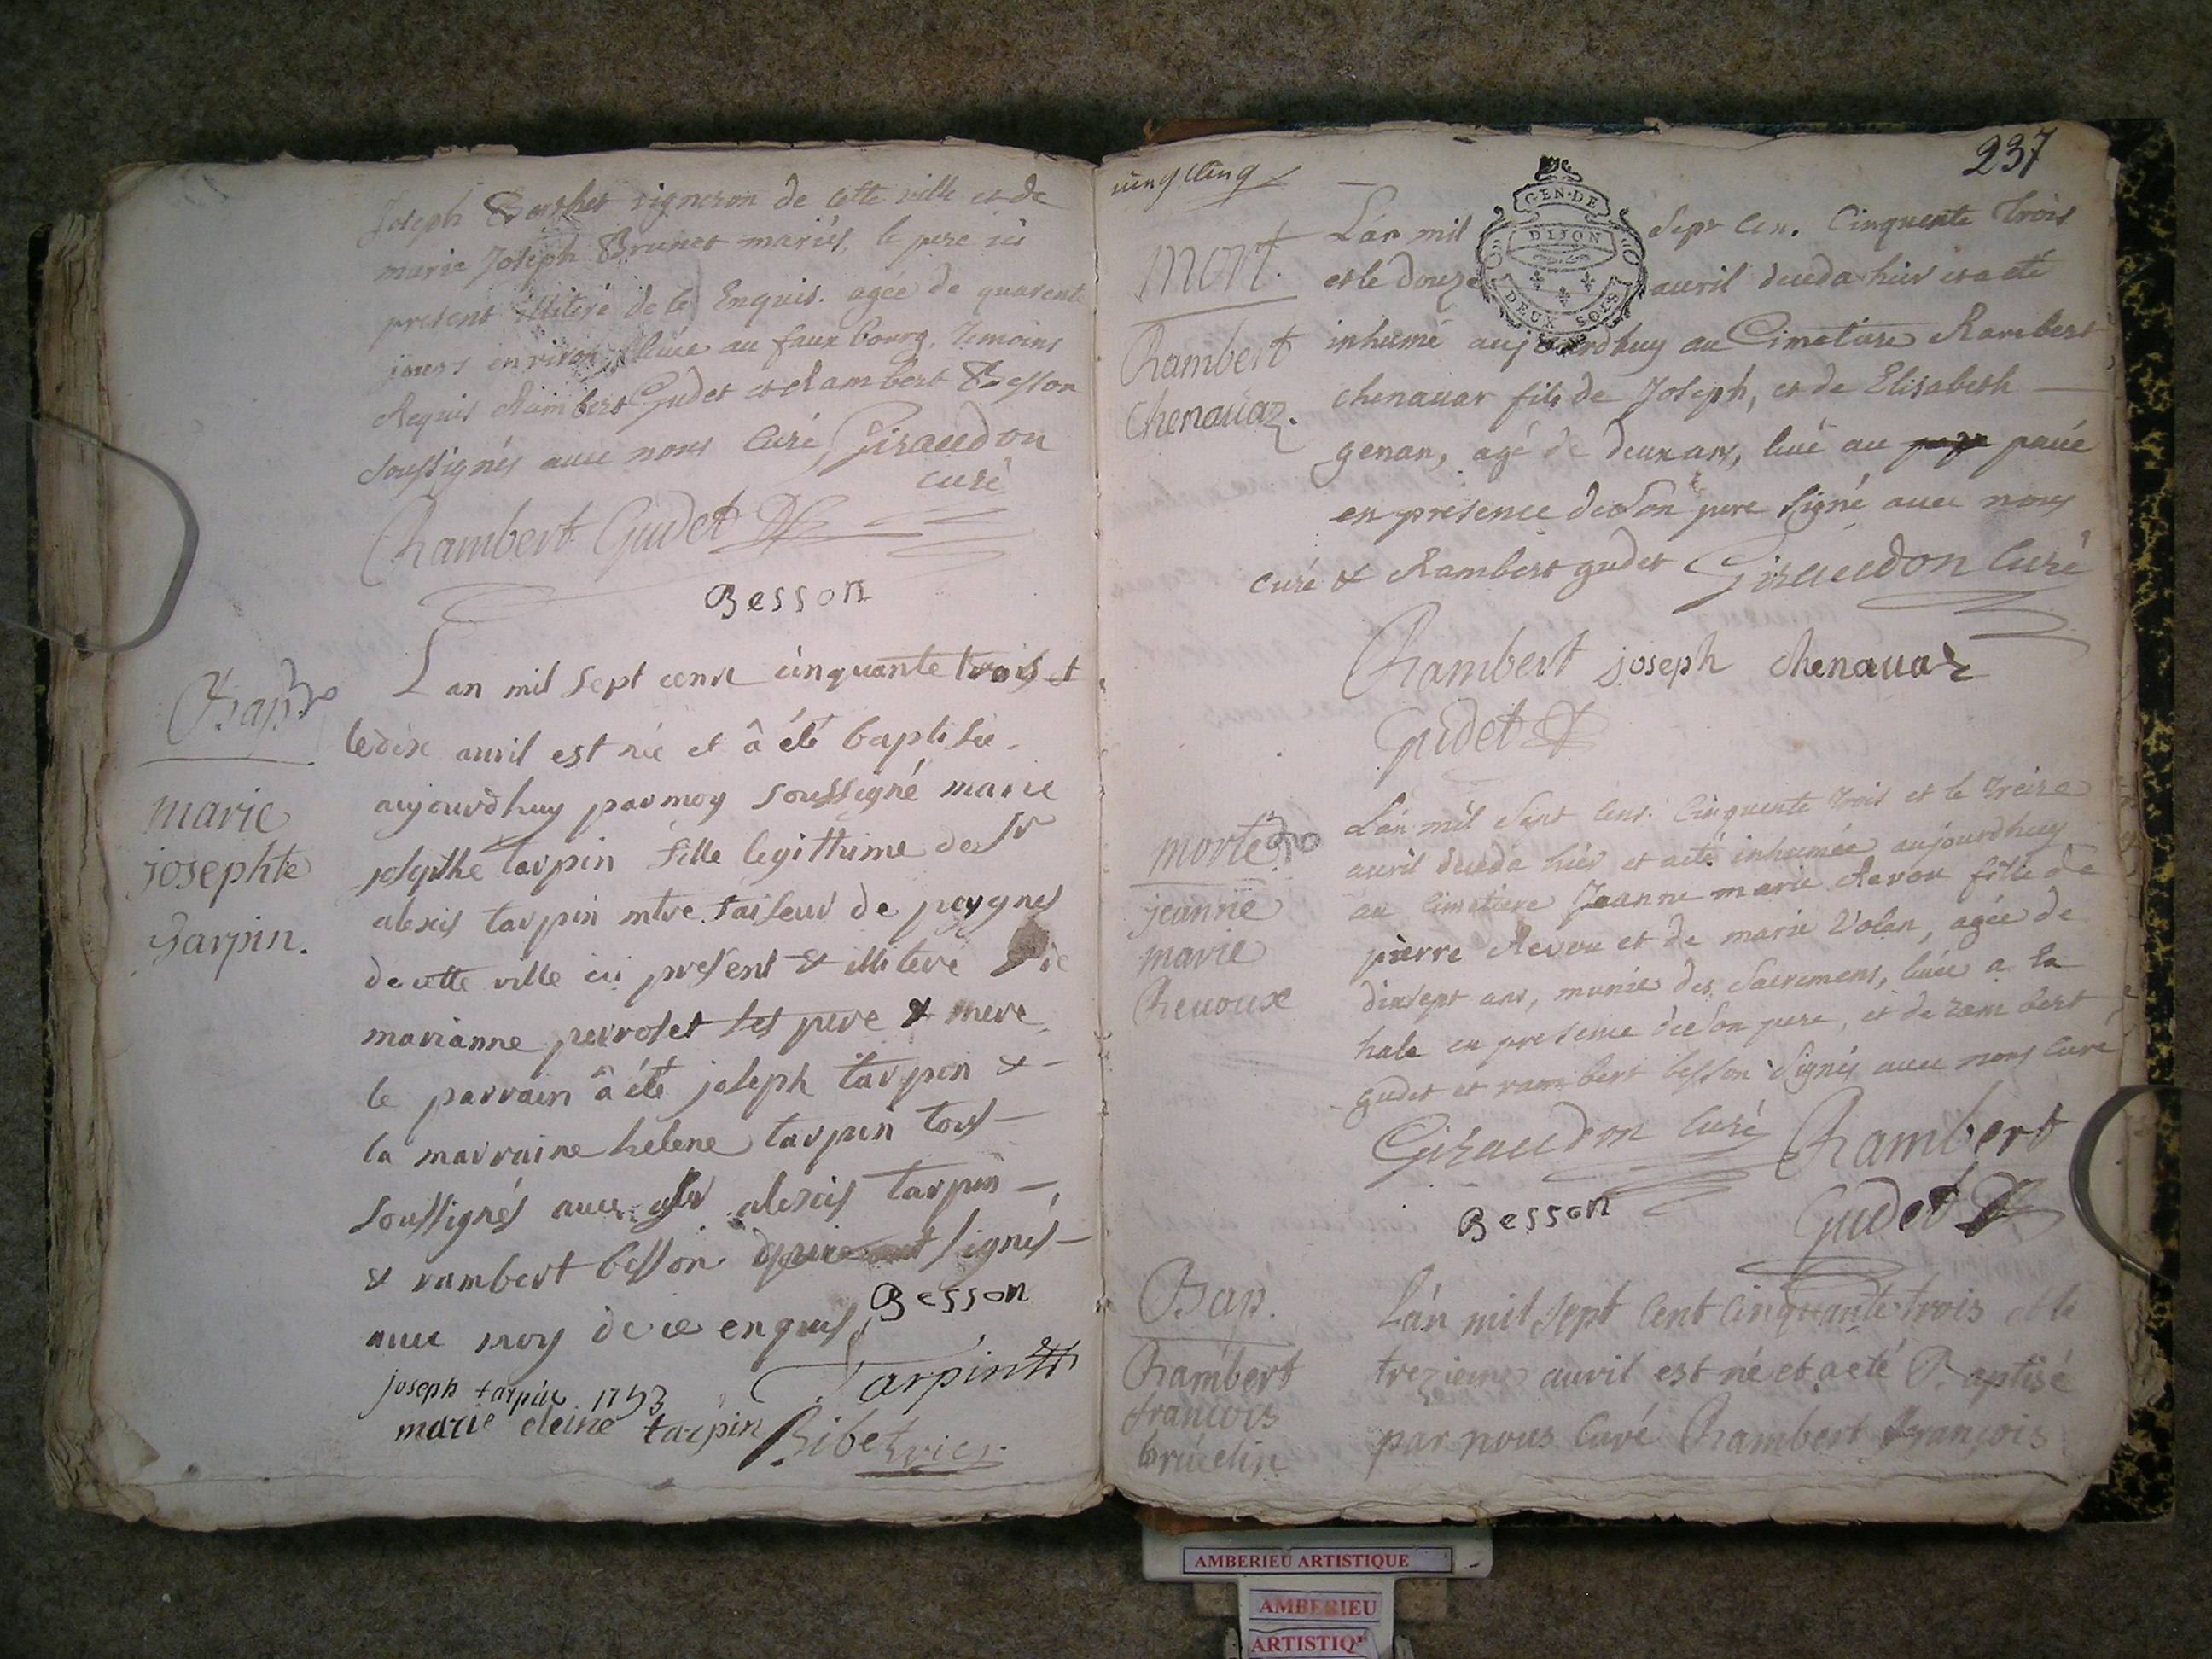 Joseph Berthet vigneron de cette ville et de
marie Joseph Brunet mariés, le pere ici
present illiteré de ce Enquis. agée de quarente
jours environ, levée au faux bourg, temoins
Requis Rambert Gudet et Rambert Besson
soussignés avec nous Curé Giraudon
curé
Rambert Gudet
Besson
Bap
marie
josephte
Tarpin.
Lan mil sept cent cinquante trois et
le dix avril est née et â été baptisée
aujourdhuy par moy soussigné marie
josephte tarpin fille legitthime de Sr
alexis tarpin mtre faiseur de peygnes
de cette ville ici present & illiteré de
marianne perroset ses pere & mere
le parrain â été joseph tarpin &
la marraine helene tarpin tous
soussignés avec alexis tarpin
& rambert besson signés
avec moy de ce enquis
Besson
Tarpin
joseph tarpin 1753
marie eleine tarpin
Ribet vicr.
237
vingt cinq
GEN. DE
DIJON
DEUX SOLS
mort.
Rambert
Chenavaz.
Lan mil sept cen. Cinquente trois
et le douze avril deceda hier et a eté
inhumé aujourdhuy au Cimetiere Rambert
chenavar fils de Joseph, et de Elisabeth
genan, agé de deux ans, levé au pavé
en presence de son pere signé avec nous
curé & Rambert gudet Giraudon Curé
Rambert joseph chenavaz
Gudet
morte
jeanne
marie
Revoux
Lán mil Sept Cent Cinquente trois et le treize
avril deceda hier et a eté inhumée aujourdhuy
au Cimetiere Jeanne marie Revou fille de
pierre Revou et de marie Volan, agée de
dixsept ans, munie des Sacremens, levée a la
hale en presence de son pere, et de rambert
gudet et rambert besson Signés avec nous Curé
Giraudon Curé Rambert
Besson Gudet
Bap.
Rambert
francois
bruelin
Lán mil sept Cent Cinquante trois et le
trezieme avril est né et a eté Baptisé
par nous Curé Rambert François
AMBERIEU ARTISTIQUE
AMBERIEU
ARTISTIQ